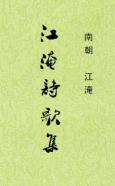 南朝 江淹
江淹詩歌集